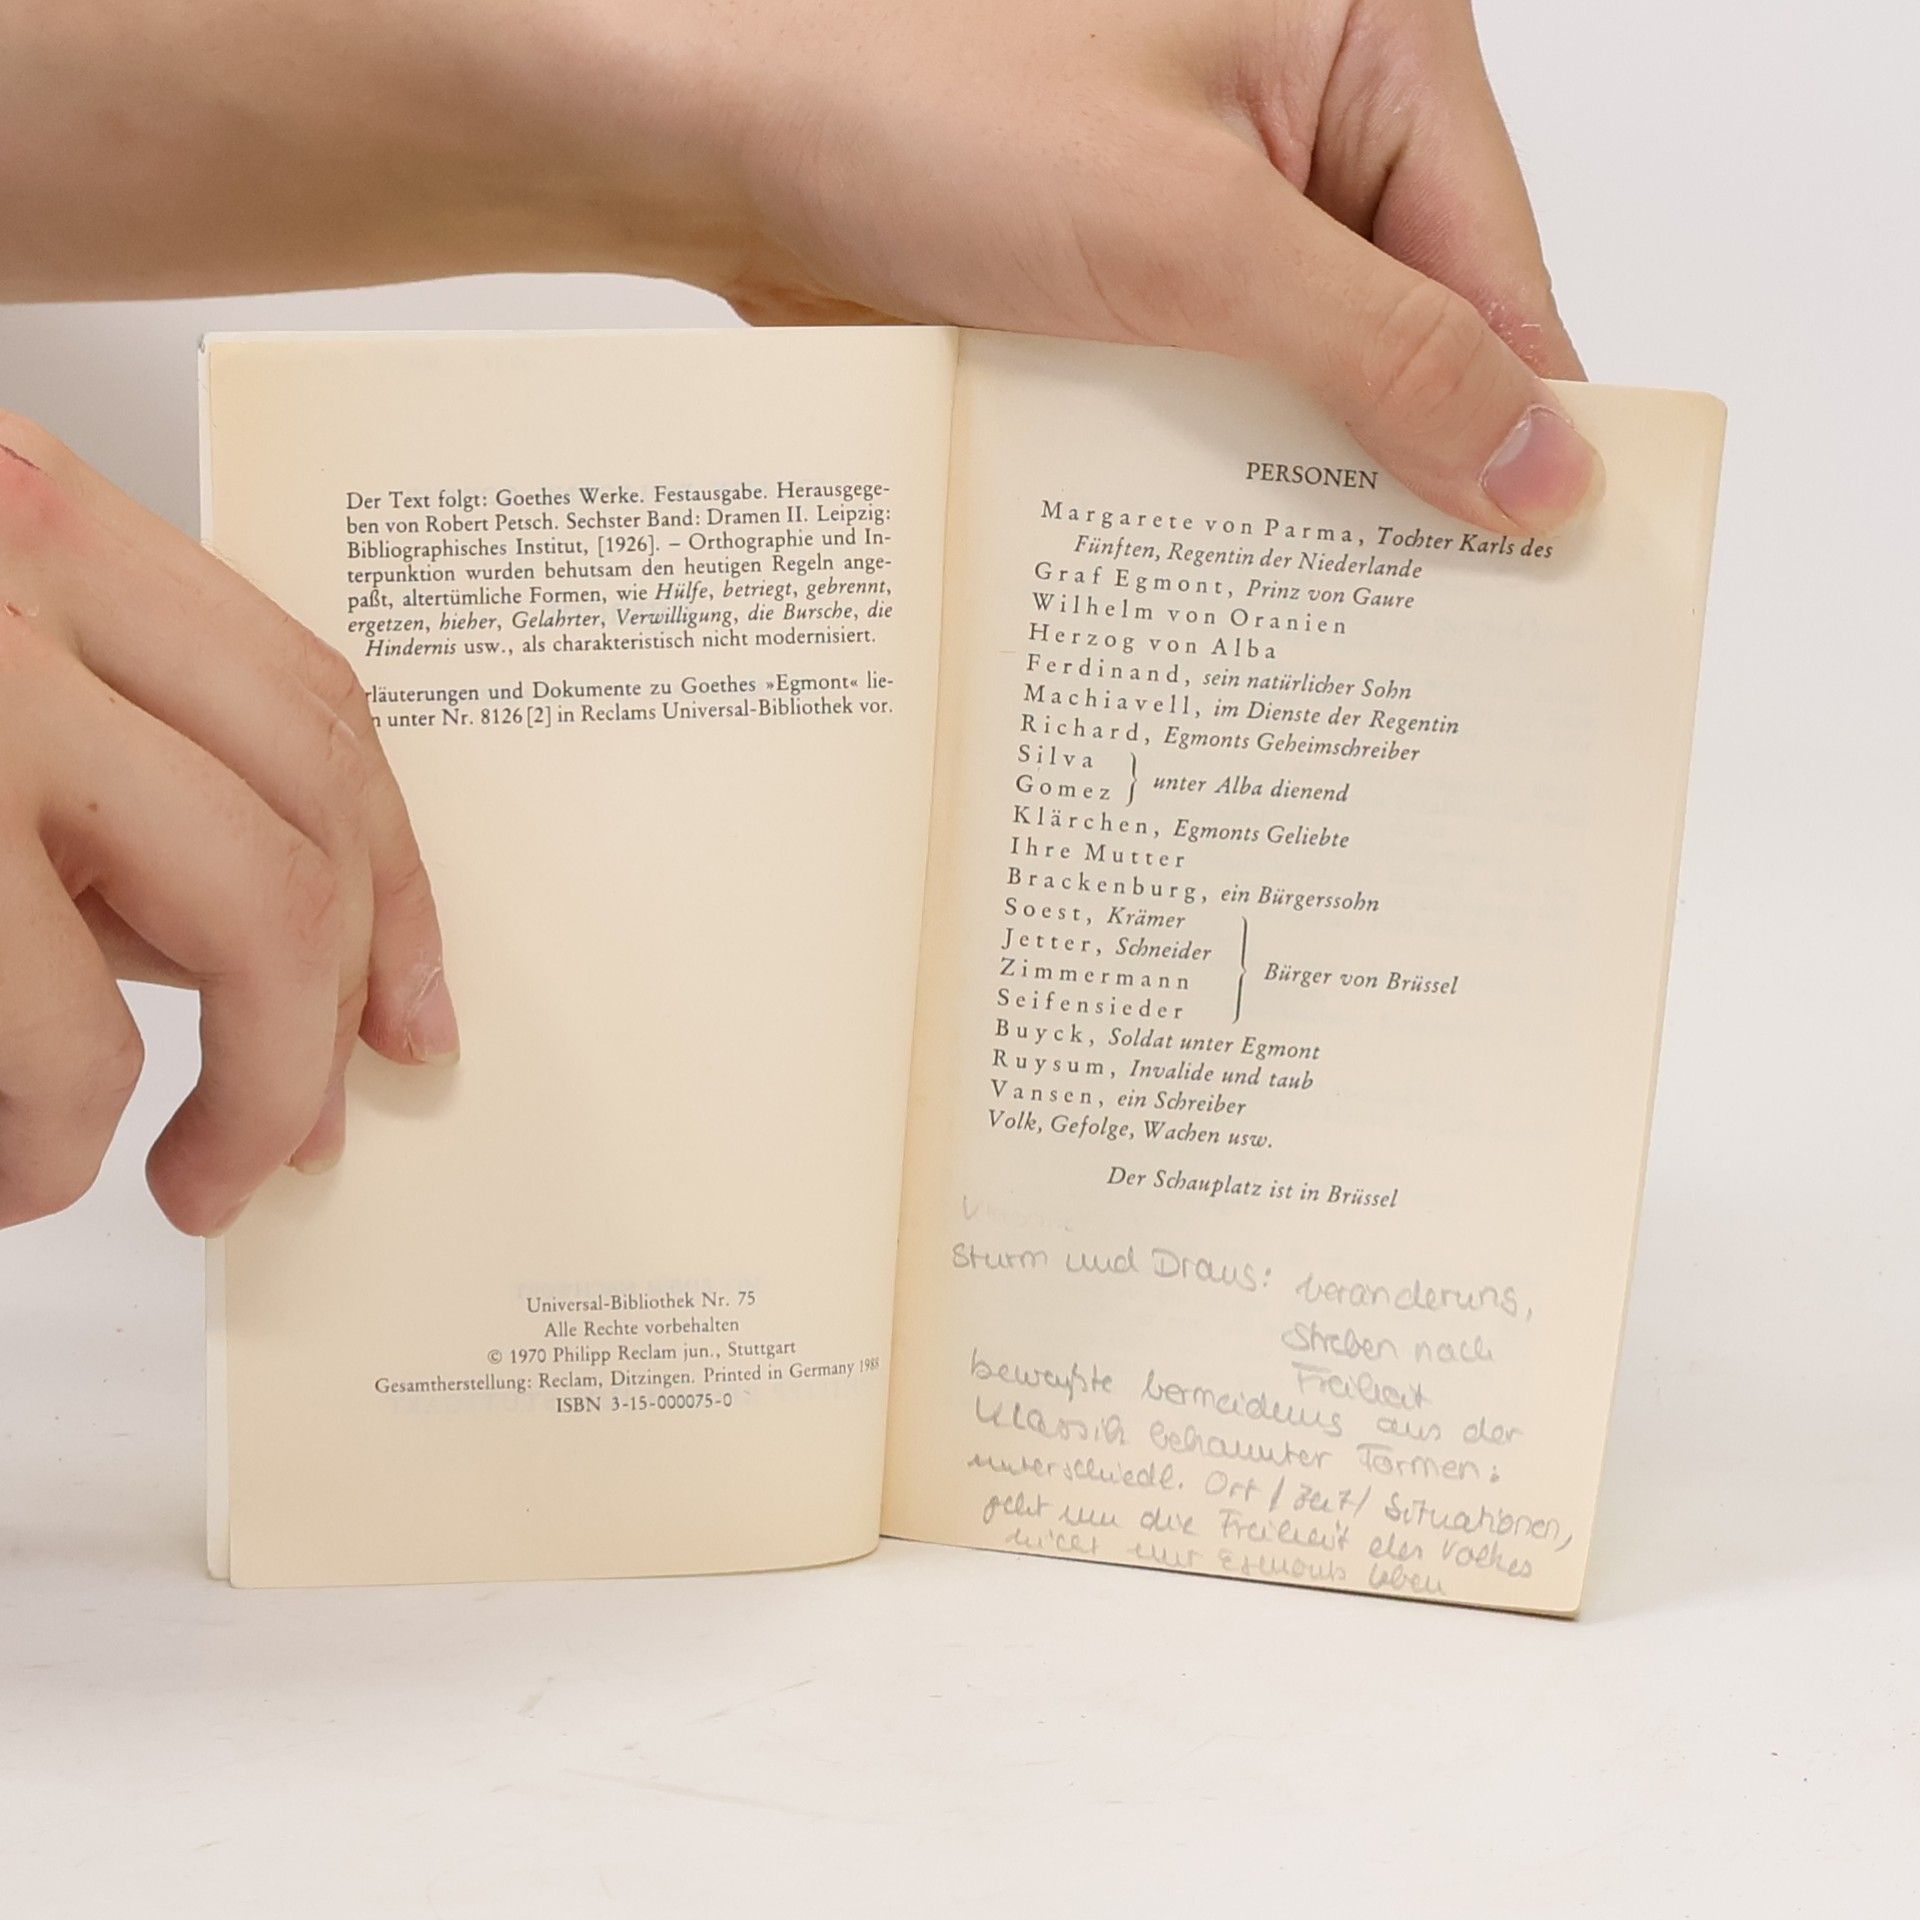 Der Text folgt: Goethes Werke. Festausgabe. Herausgege-
ben von Robert Petsch. Sechster Band: Dramen II. Leipzig:
Bibliographisches Institut, [1926]. – Orthographie und In-
terpunktion wurden behutsam den heutigen Regeln ange-
paßt, altertümliche Formen, wie Hülfe, betriegt, gebrennt,
ergetzen, hieher, Gelahrter, Verwilligung, die Bursche, die
Hindernis usw., als charakteristisch nicht modernisiert.
rläuterungen und Dokumente zu Goethes »Egmont« lie-
n unter Nr. 8126 [2] in Reclams Universal-Bibliothek vor.
Universal-Bibliothek Nr. 75
Alle Rechte vorbehalten
© 1970 Philipp Reclam jun., Stuttgart
Gesamtherstellung: Reclam, Ditzingen. Printed in Germany 1988
ISBN 3-15-000075-0
PERSONEN
Margarete von Parma, Tochter Karls des
Fünften, Regentin der Niederlande
Graf Egmont, Prinz von Gaure
Wilhelm von Oranien
Herzog von Alba
Ferdinand, sein natürlicher Sohn
Machiavell, im Dienste der Regentin
Richard, Egmonts Geheimschreiber
Silva
Gomez } unter Alba dienend
Klärchen, Egmonts Geliebte
Ihre Mutter
Brackenburg, ein Bürgerssohn
Soest, Krämer
Jetter, Schneider
Zimmermann } Bürger von Brüssel
Seifensieder
Buyck, Soldat unter Egmont
Ruysum, Invalide und taub
Vansen, ein Schreiber
Volk, Gefolge, Wachen usw.
Der Schauplatz ist in Brüssel
Sturm und Drang: Veränderung,
Streben nach
Freiheit
bewußte Vermeidung aus der
Klassik bekannter Formen:
unterschiedl. Ort / Zeit / Situationen,
geht um die Freiheit des Volkes
nicht nur Egmonts Leben